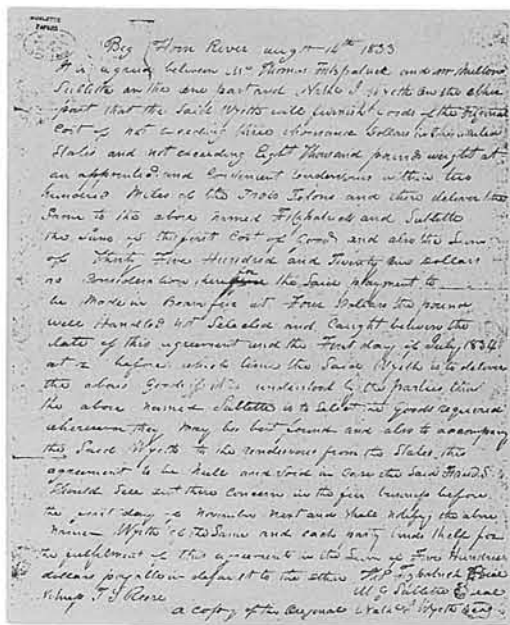 SUBLETTE
PAPERS
Big Horn River Augt 14th 1833
It is agreed between Mr Thomas Fitzpatrick and Mr Milton
Sublette on the one part and Nathl J Wyeth on the other
part that the Said Wyeth will furnish goods of the original
Cost of not exceeding three thousand Dollars in the united
States and not exceeding Eight Thousand pounds weight at
an appointed and Convenient rendesvous within two
hundred Miles of the Trois Tetons and there deliver the
Same to the above named Fitzpatrick and Sublette
the Sum of the first Cost of Goods and also the Sum
of Thirty Five Hundred and Twenty one Dollars
as Consideration therefor the Said payment to
be Made in Beaver fur at Four Dollars the pound
well Handled not Selected and Caught between the
date of this agreement and the First day of July 1834
at before which time the Said Wyeth is to deliver
the above Goods it is understood by the parties that
the above named Sublette is to Select the goods required
wherever they May be best found and also to accompany
the Said Wyeth to the rendesvous from the States, this
agreement to be Null and Void in Case the Said F and S
Should Sell out there Concern in the fur business before
the first day of November Next and Shall notify the above
Name Wyeth of the Same and each party binds itself for
the fulfilment of this agreement in the Sum of Five Hundred
dollars payable in default to the other Fitzpatrick Seal
M G Sublette Seal
A Copy of the Original Nathl J Wyeth Seal